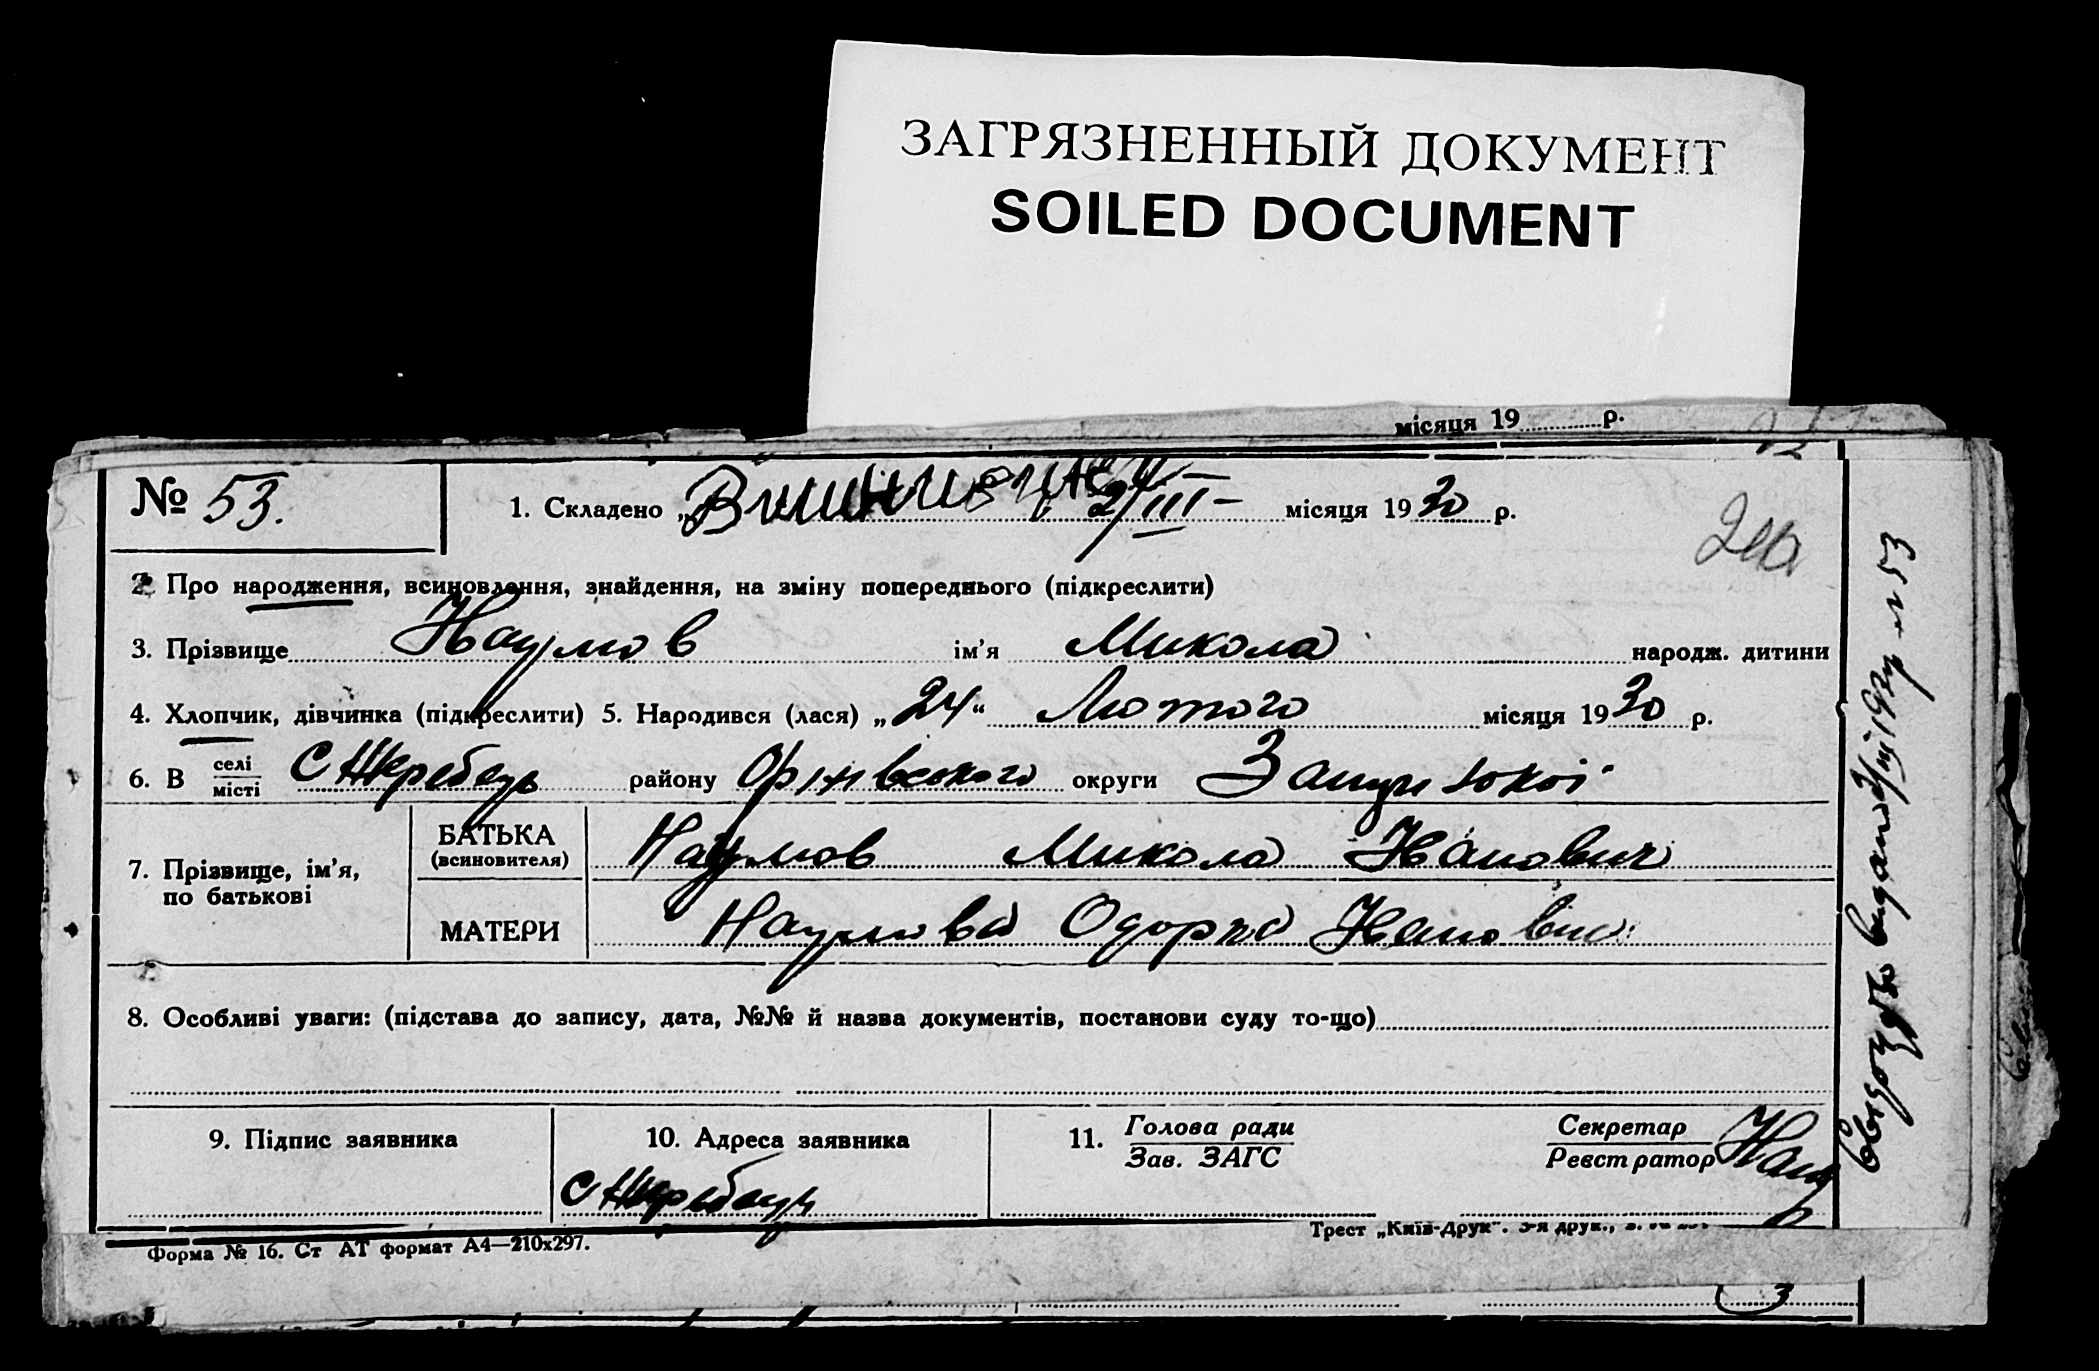 ЗАГРЯЗНЕННЫЙ ДОКУМЕНТ
SOILED DOCUMENT
місяця 19 р.
№ 53.
1. Складено „ 2/III – місяця 1930 р.
2. Про народження, всиновлення, знайдення, на зміну попереднього (підкреслити)
3. Прізвище Наумов ім'я Микола народж. дитини
4. Хлопчик, дівчинка (підкреслити) 5. Народився (лася) „24“ Лютого місяця 1930 р.
6. В селі/місті С Жеребець району Оріхівського округи
7. Прізвище, ім'я, по батькові
БАТЬКА (всиновителя) Наумов Микола Иванович
МАТЕРИ Наумова Одорка Ивановна
8. Особливі уваги: (підстава до запису, дата, №№ й назва документів, постанови суду то-що)
9. Підпис заявника
10. Адреса заявника
С Жеребець
11. Голова ради / Зав. ЗАГС
Секретар / Реєстратор
Форма № 16. Ст АТ формат А4—210х297.
Трест „Київ-Друк“. 3-я друк.,
видано 2/III 1930 р № 53